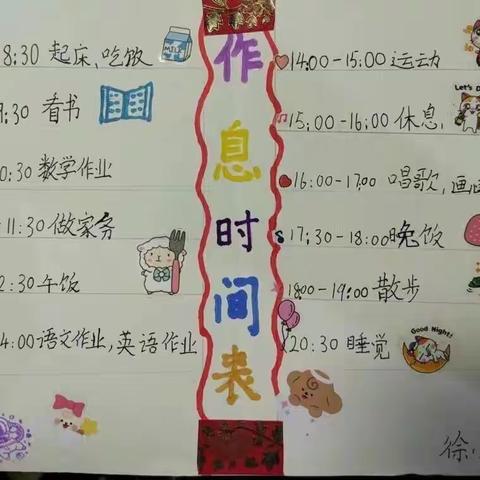 作息时间表
8:30 起床、吃饭
MILK
9:30 看书
0:30 数学作业
11:30 做家务
2:30 午饭
4:00 语文作业,英语作业
14:00-15:00 运动
Let's D
15:00-16:00 休息、
16:00-17:00 唱歌,画
17:30-18:00 晚饭
18:00-19:00 散步
20:30 睡觉
Good Night!
徐